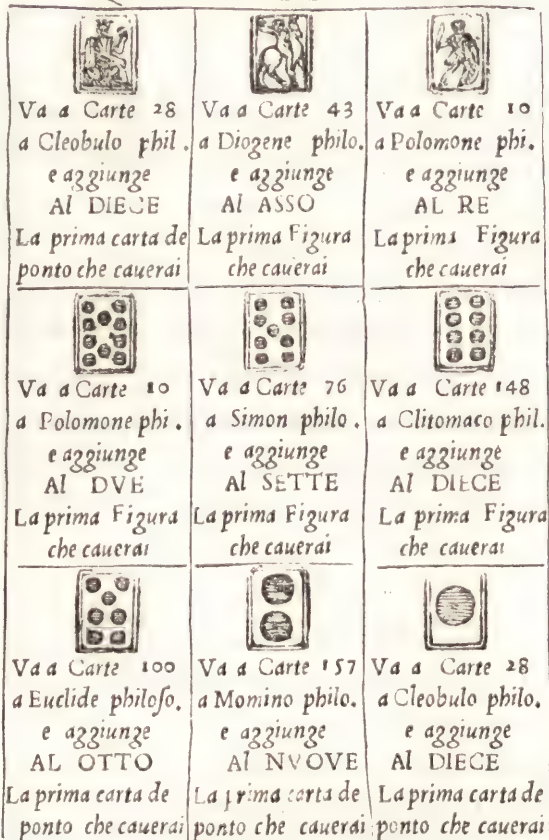 Va a Carte 28
a Cleobulo phil.
e aggiunge
Al DIECE
La prima carta de
ponto che cauerai
Va a Carte 43
a Diogene philo.
e aggiunge
Al ASSO
La prima Figura
che cauerai
Va a Carte 10
a Polomone phi.
e aggiunge
AL RE
La prima Figura
che cauerai
Va a Carte 10
a Polomone phi.
e aggiunge
Al DVE
La prima Figura
che cauerai
Va a Carte 76
a Simon philo.
e aggiunge
Al SETTE
La prima Figura
che cauerai
Va a Carte 148
a Clitomaco phil.
e aggiunge
Al DIECE
La prima Figura
che cauerai
Va a Carte 100
a Euclide philoſo.
e aggiunge
AL OTTO
La prima carta de
ponto che cauerai
Va a Carte 157
a Momino philo.
e aggiunge
Al NVOVE
La prima carta de
ponto che cauerai
Va a Carte 28
a Cleobulo philo.
e aggiunge
Al DIECE
La prima carta de
ponto che cauerai